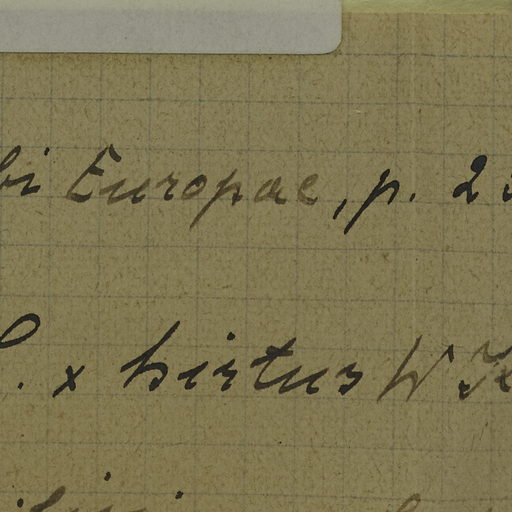 bi Europae, p. 2
. x hirtus W K